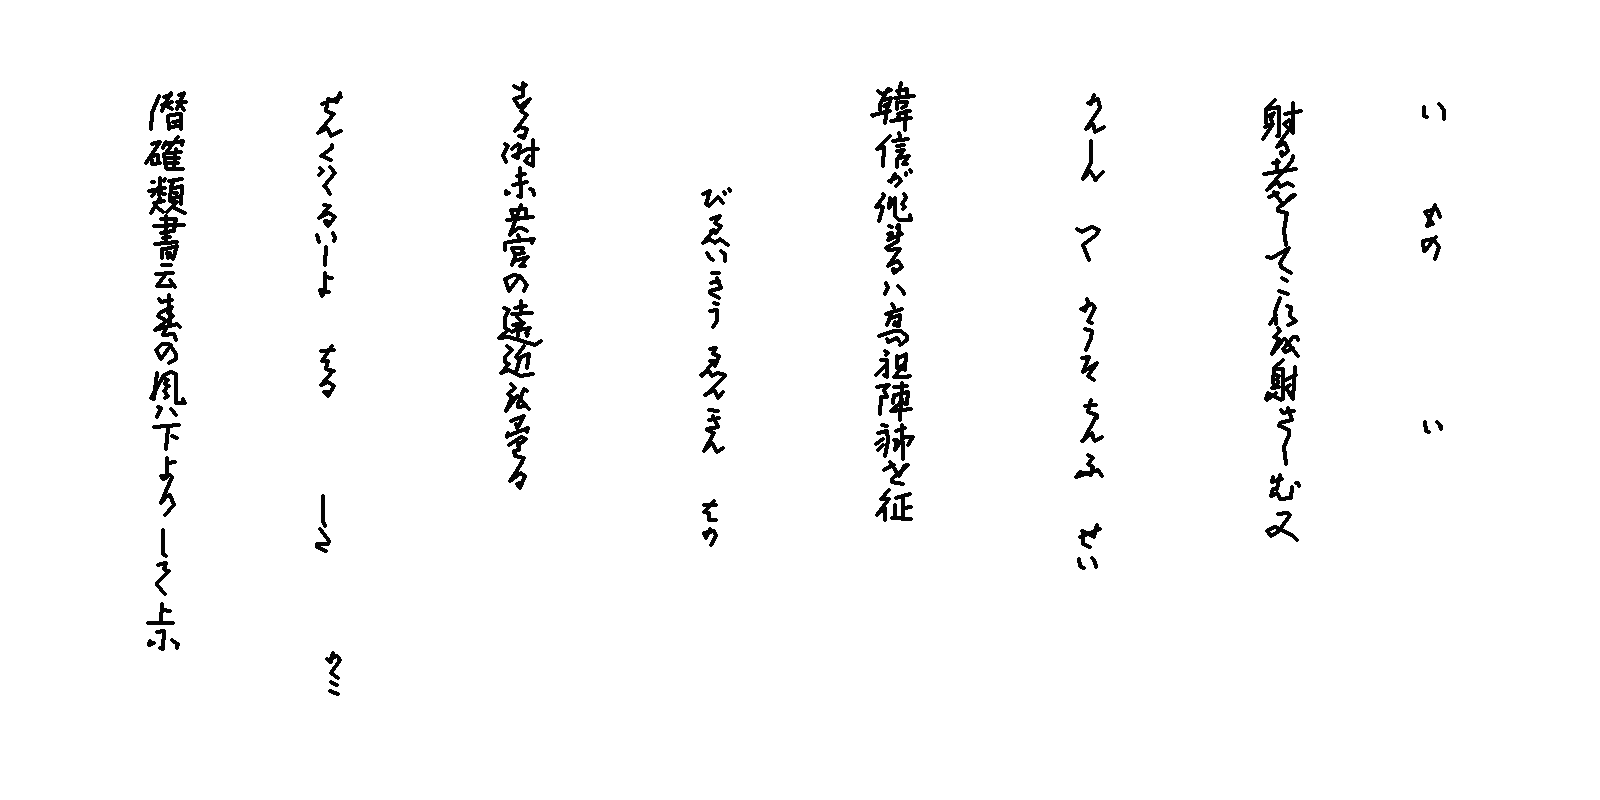 い もの い
射る者をしてこれを射さしむ又
かんしん つく かうそ ちんふ せい
韓信が作るハ高祖陳豨を征
びゑいきう ゑんきん はか
する時未央宮の遠近を量る
せんくはくるいしよ はる した かミ
潜確類書云春の風ハ下よりして上に